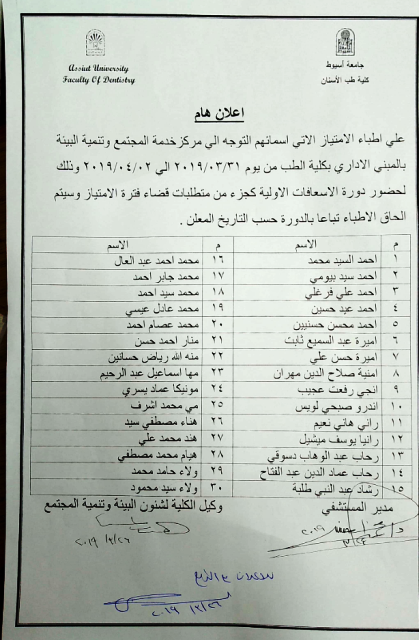 جامعة أسيوط
كلية طب الأسنان
Assiut University
Faculty Of Dentistry
اعلان هام
علي اطباء الامتياز الاتي اسمائهم التوجه الي مركز خدمة المجتمع وتنمية البيئة
بالمبني الاداري بكلية الطب من يوم ٢٠١٩/٠٣/٣١ الي ٢٠١٩/٠٤/٠٢ وذلك
لحضور دورة الاسعافات الاولية كجزء من متطلبات قضاء فترة الامتياز وسيتم
الحاق الاطباء تباعا بالدورة حسب التاريخ المعلن .
م الاسم م الاسم
١ احمد السيد محمد ١٦ محمد احمد عبد العال
٢ احمد سيد بيومي ١٧ محمد جابر احمد
٣ احمد علي فرغلي ١٨ محمد سيد احمد
٤ احمد عيد حسين ١٩ محمد عادل عيسي
٥ احمد محسن حسنيين ٢٠ محمد عصام احمد
٦ اميرة عبد السميع ثابت ٢١ منار احمد حسن
٧ اميرة حسن علي ٢٢ منه الله رياض حسانين
٨ امنية صلاح الدين مهران ٢٣ مها اسماعيل عبد الرحيم
٩ انجي رفعت عجيب ٢٤ مونيكا عماد يسري
١٠ اندرو صبحي لويس ٢٥ مي محمد اشرف
١١ راني هاني نعيم ٢٦ هناء مصطفي سيد
١٢ رانيا يوسف ميشيل ٢٧ هند محمد علي
١٣ رحاب عبد الوهاب دسوقي ٢٨ هيام محمد مصطفي
١٤ رحاب عماد الدين عبد الفتاح ٢٩ ولاء حامد محمد
١٥ رشاد عبد النبي طلبة ٣٠ ولاء سيد محمود
مدير المستشفي وكيل الكلية لشئون البيئة وتنمية المجتمع
٢٠١٩/٣/٢٦
٢٠١٩/٣/٢٦